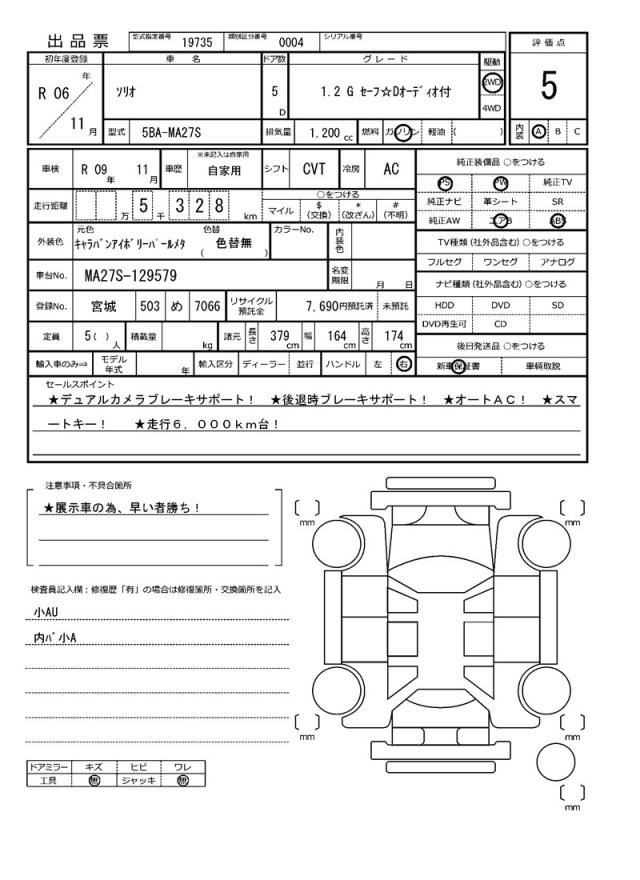 出品票
型式指定番号 19735 類別区分番号 0004 シリアル番号
評価点
5
内装 A B C
初年度登録 車名 ドア数 グレード 駆動
R 06 年 11 月
ソリオ
5 D
1.2 G セーフ☆Dオーディオ付
2WD
4WD
型式 5BA-MA27S 排気量 1.200 cc 燃料 ガソリン 軽油 ( )
車検 R 09 年 11 月 車歴 ※未記入は自家用 自家用 シフト CVT 冷房 AC
走行距離 万 5 千 3 2 8 km
○をつける
マイル $(交換) *(改ざん) #(不明)
外装色 元色 キャラバンアイボリーパールメタ 色替 ( 色替無 ) カラーNo. 内装色
車台No. MA27S-129579 名変期限 月 日
登録No. 宮城 503 め 7066 リサイクル預託金 7,690円預託済 未預託
定員 5( )人 積載量 kg 諸元 長さ 379 cm 幅 164 cm 高さ 174 cm
輸入車のみ⇒ モデル年式 年 輸入区分 ディーラー 並行 ハンドル 左 右
純正装備品 ○をつける
PS PW 純正TV
純正ナビ 革シート SR
純正AW エアB ABS
TV種類(社外品含む)○をつける
フルセグ ワンセグ アナログ
ナビ種類(社外品含む)○をつける
HDD DVD SD
DVD再生可 CD
後日発送品 ○をつける
新車保証書 車輌取説
セールスポイント
★デュアルカメラブレーキサポート! ★後退時ブレーキサポート! ★オートAC! ★スマ
ートキー! ★走行6,000km台!
注意事項・不具合箇所
★展示車の為、早い者勝ち!
検査員記入欄:修復歴「有」の場合は修復箇所・交換箇所を記入
小AU
内バ小A
ドアミラー キズ ヒビ ワレ
工具 無 ジャッキ 無
[ ] mm
[ ] mm
[ ] mm
[ ] mm
[ ] mm